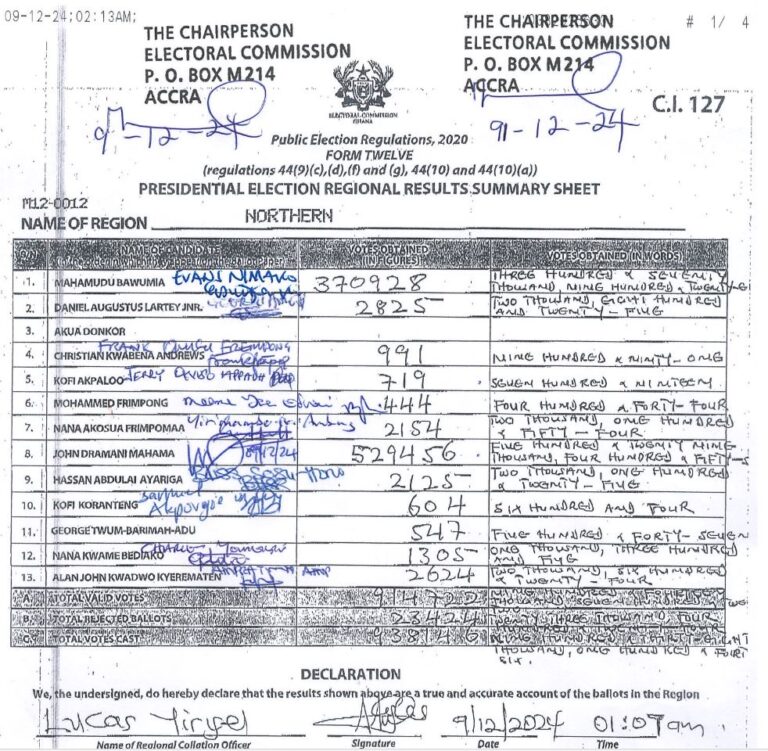 09-12-24;02:13AM;
# 1/ 4
THE CHAIRPERSON
ELECTORAL COMMISSION
P. O. BOX M214
ACCRA
9-12-24
THE CHAIRPERSON
ELECTORAL COMMISSION
P. O. BOX M214
ACCRA
91-12-24
ELECTORAL COMMISSION
GHANA
C.I. 127
Public Election Regulations, 2020
FORM TWELVE
(regulations 44(9)(c),(d),(f) and (g), 44(10) and 44(10)(a))
PRESIDENTIAL ELECTION REGIONAL RESULTS SUMMARY SHEET
M12-0012
NAME OF REGION NORTHERN
NAME OF CANDIDATE VOTES OBTAINED (IN FIGURES) VOTES OBTAINED (IN WORDS)
1. MAHAMUDU BAWUMIA EVANS NIMAKO 370928 THREE HUNDRED & SEVENTY THOUSAND, NINE HUNDRED & TWENTY-
2. DANIEL AUGUSTUS LARTEY JNR. 2825 TWO THOUSAND, EIGHT HUNDRED AND TWENTY - FIVE
3. AKUA DONKOR
4. CHRISTIAN KWABENA ANDREWS FRANK 991 NINE HUNDRED & NINTY-ONE
5. KOFI AKPALOO 719 SEVEN HUNDRED & NINTEEN
6. MOHAMMED FRIMPONG 444 FOUR HUNDRED & FORTY-FOUR
7. NANA AKOSUA FRIMPOMAA 2154 TWO THOUSAND, ONE HUNDRED & FIFTY - FOUR
8. JOHN DRAMANI MAHAMA 9/12/24 529456 FIVE HUNDRED & TWENTY NINE THOUSAND, FOUR HUNDRED & FIFTY-S
9. HASSAN ABDULAI AYARIGA 2125 TWO THOUSAND, ONE HUNDRED & TWENTY - FIVE
10. KOFI KORANTENG 604 SIX HUNDRED AND FOUR
11. GEORGE TWUM-BARIMAH-ADU 547 FIVE HUNDRED & FORTY-SEVEN
12. NANA KWAME BEDIAKO 1305 ONE THOUSAND, THREE HUNDRED AND FIVE
13. ALAN JOHN KWADWO KYEREMATEN 2624 TWO THOUSAND, SIX HUNDRED & TWENTY - FOUR
A. TOTAL VALID VOTES 914722
B. TOTAL REJECTED BALLOTS 23424 TWENTY THREE THOUSAND FOUR
C. TOTAL VOTES CAST 938146 NINE HUNDRED & THIRTY-EIGHT THOUSAND, ONE HUNDRED & FORTY SIX.
DECLARATION
We, the undersigned, do hereby declare that the results shown above are a true and accurate account of the ballots in the Region
Lucas Yiryel 9/12/2024 01:07am
Name of Regional Collation Officer Signature Date Time